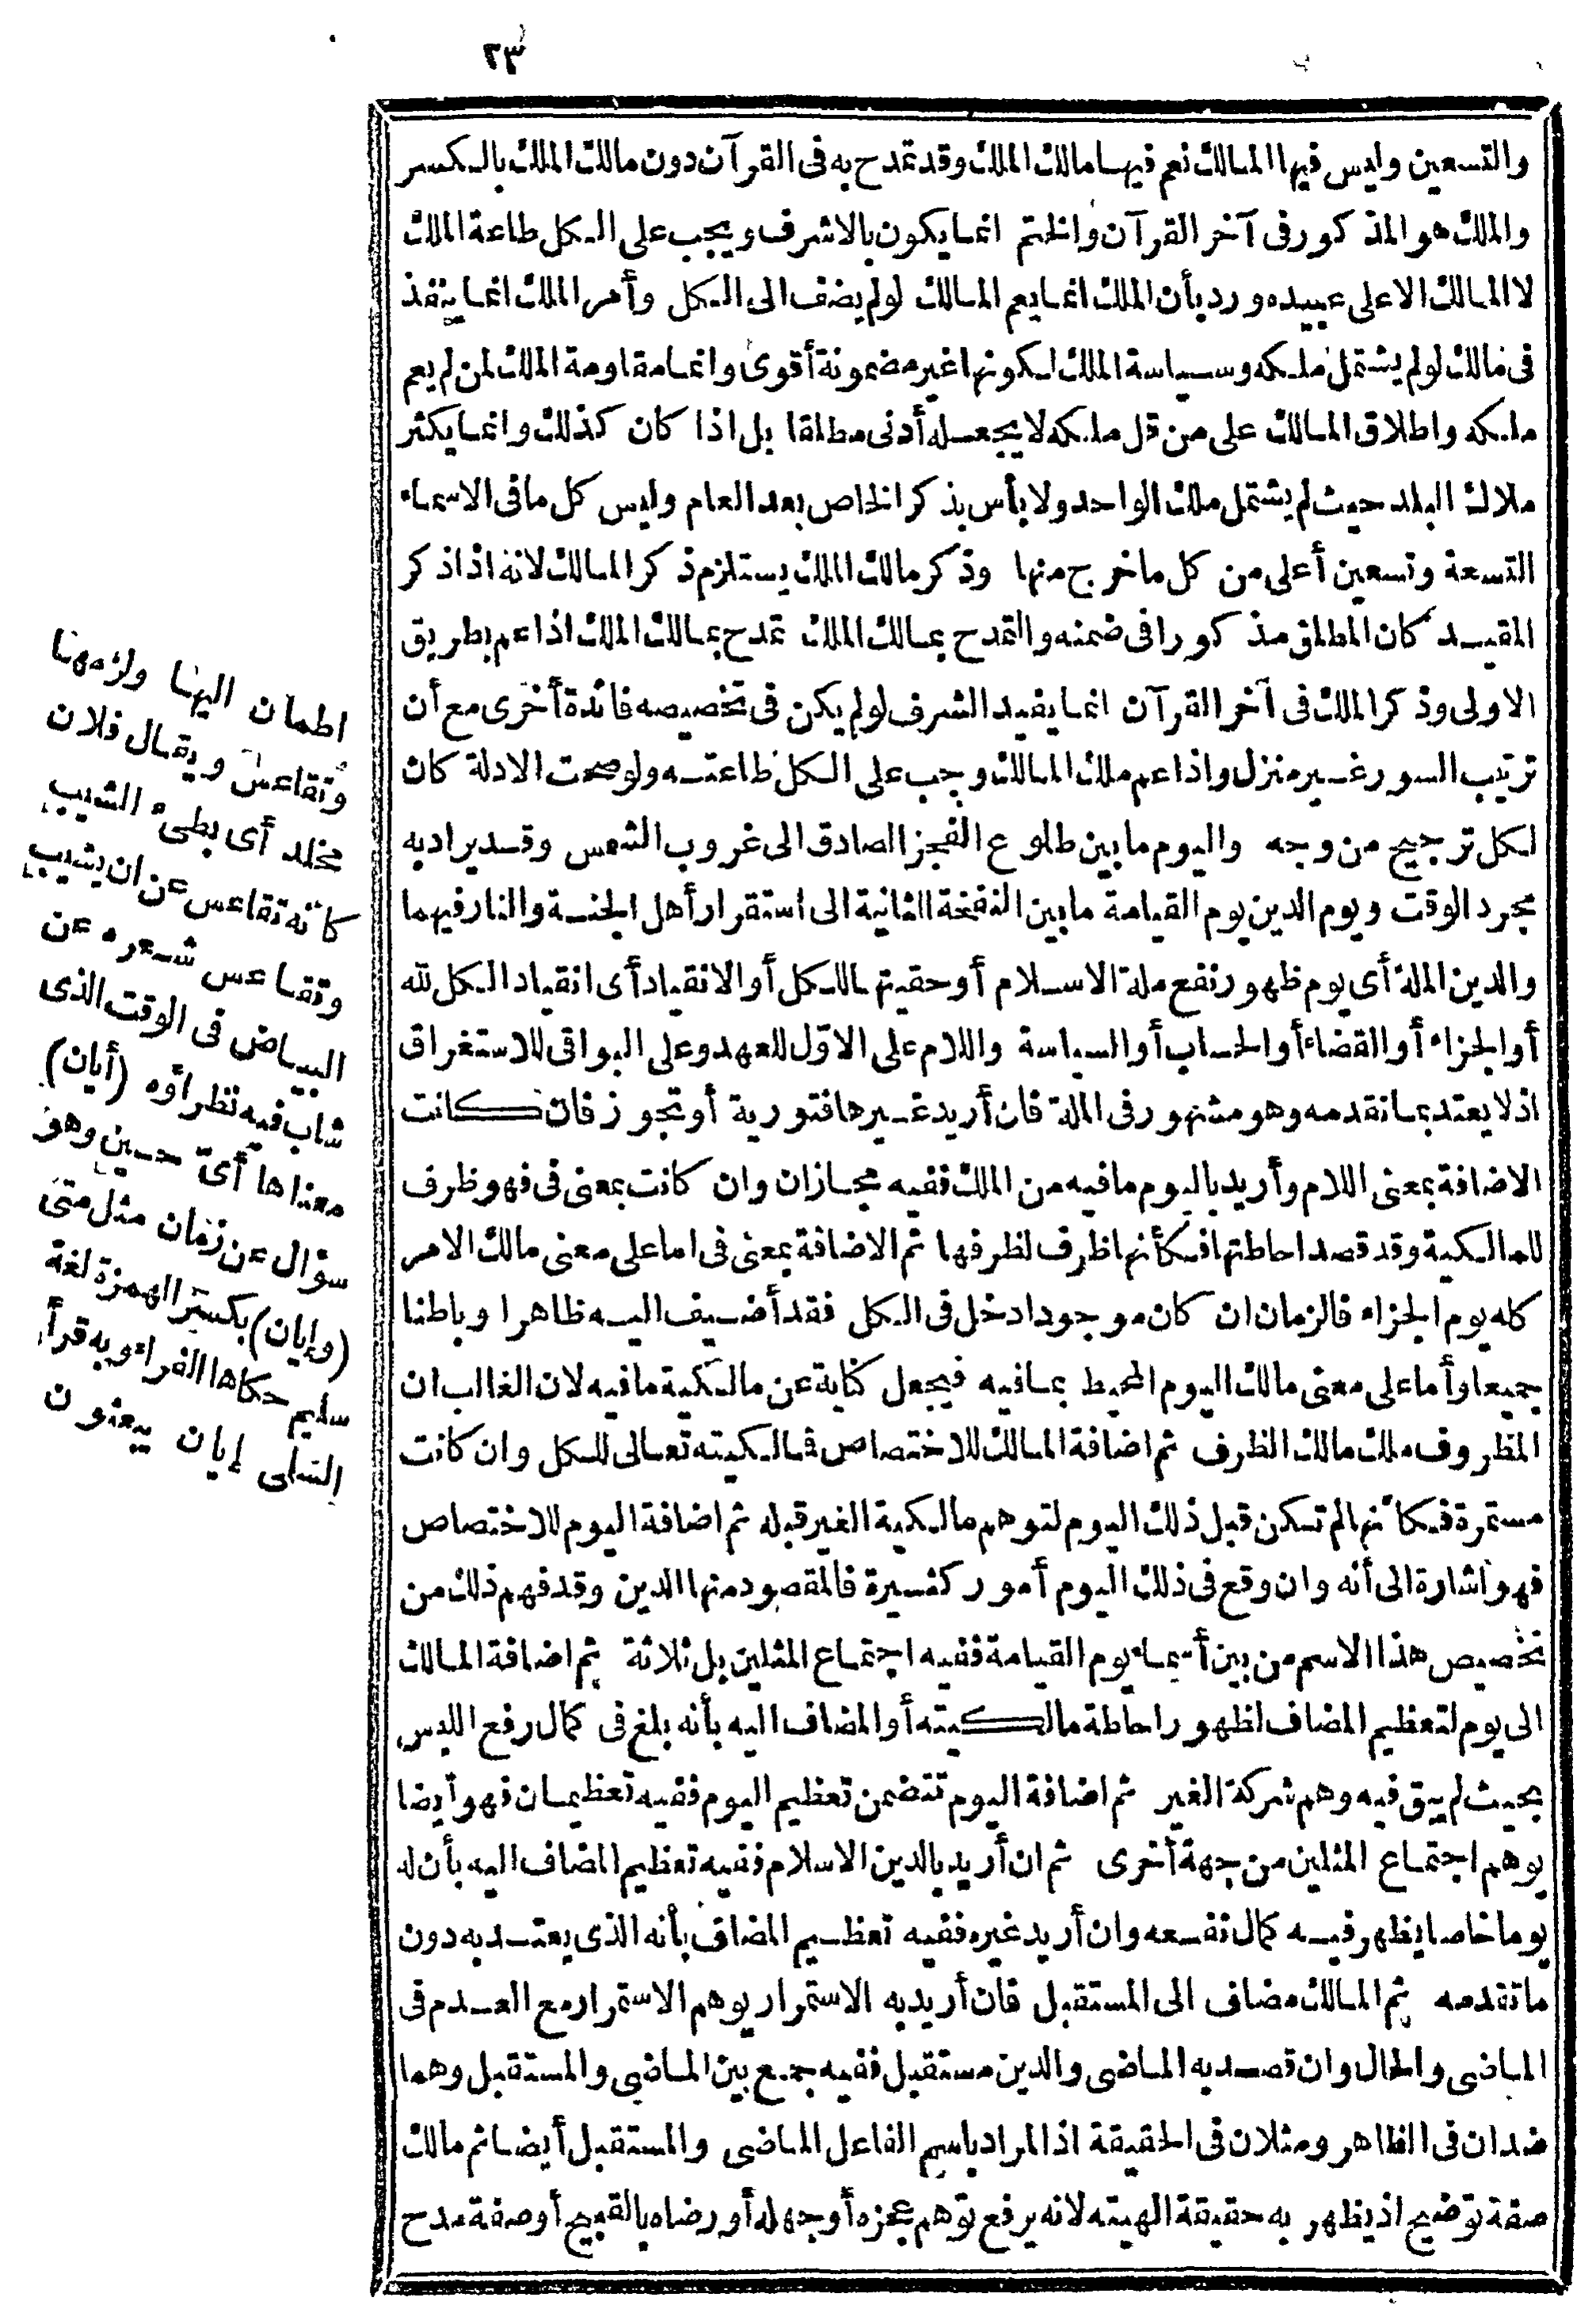 ٢٣
والتسعين وليس فيها المالك نعم فيها مالك الملك وقد تمدح به فى القرآن دون مالك الملك بالكسر
والملك هو المذكور فى آخر القرآن والختم انما يكون بالاشرف ويجب على الكل طاعة الملك
لا المالك الا على عبيده ورد بأن الملك انما يعم المالك لو لم يضف الى الكل وأمر الملك انما ينفذ
فى مالك لو لم يشتمل ملكه وسياسة الملك لكونها غير مضمونة أقوى وانما مقاومة الملك لمن لم يعم
ملكه واطلاق المالك على من قل ملكه لا يجعله أدنى مطلقا بل اذا كان كذلك وانما يكثر
ملاك البلد حيث لم يشتمل ملك الواحد ولا بأس بذكر الخاص بعد العام وليس كل ما فى الاسماء
التسعة وتسعين أعلى من كل ما خرج منها وذكر مالك الملك يستلزم ذكر المالك لانه اذا ذكر
المقيد كان المطلق مذكورا فى ضمنه والتمدح بمالك الملك تمدح بمالك الملك اذا عم بطريق
الاولى وذكر الملك فى آخر القرآن انما يفيد الشرف لو لم يكن فى تخصيصه فائدة أخرى مع أن
ترتيب السور غير منزل واذا عم ملك المالك وجب على الكل طاعته ولو صحت الادلة كان
لكل ترجيح من وجه واليوم ما بين طلوع الفجر الصادق الى غروب الشمس وقد يراد به
مجرد الوقت ويوم الدين يوم القيامة ما بين النفخة الثانية الى استقرار أهل الجنة والنار فيهما
والدين الملة أى يوم ظهور نفع ملة الاسلام أو حقيتها للكل أو الانقياد أى انقياد الكل لله
أو الجزاء أو القضاء أو الحساب أو السياسة واللام على الاوّل للعهد وعلى البواقى للاستغراق
اذ لا يعتد بما تقدمه وهو مشهور فى الملة فان أريد غيرها فتورية أو تجوز فان كانت
الاضافة بمعنى اللام وأريد باليوم ما فيه من الملك ففيه مجازان وان كانت بمعنى فى فهو ظرف
للمالكية وقد قصد احاطتها فكأنها ظرف لظرفها ثم الاضافة بمعنى فى اما على معنى مالك الامر
كله يوم الجزاء فالزمان ان كان موجودا دخل فى الكل فقد أضيف اليه ظاهرا وباطنا
جميعا وأما على معنى مالك اليوم المحيط بما فيه فيجعل كناية عن مالكية ما فيه لان الغالب ان
المظروف ملك مالك الظرف ثم اضافة المالك للاختصاص فمالكيته تعالى للكل وان كانت
مستمرة فكأنها لم تكن قبل ذلك اليوم لتوهم مالكية الغير قبله ثم اضافة اليوم للاختصاص
فهو اشارة الى أنه وان وقع فى ذلك اليوم أمور كثيرة فالمقصود منها الدين وقد فهم ذلك من
تخصيص هذا الاسم من بين أسماء يوم القيامة ففيه اجتماع المثلين بل ثلاثة ثم اضافة المالك
الى يوم لتعظيم المضاف لظهور احاطة مالكيته أو المضاف اليه بأنه بلغ فى كمال رفع اللبس
بحيث لم يبق فيه وهم شركة الغير ثم اضافة اليوم تتضمن تعظيم اليوم ففيه تعظيمان فهو أيضا
يوهم اجتماع المثلين من جهة أخرى ثم ان أريد بالدين الاسلام ففيه تعظيم المضاف اليه بأن له
يوما خاصا يظهر فيه كمال نفعه وان أريد غيره ففيه تعظيم المضاف بأنه الذى يعتد به دون
ما تقدمه ثم المالك مضاف الى المستقبل فان أريد به الاستمرار يوهم الاستمرار مع العدم فى
الماضى والحال وان قصد به الماضى والدين مستقبل ففيه جمع بين الماضى والمستقبل وهما
ضدان فى الظاهر ومثلان فى الحقيقة اذ المراد باسم الفاعل الماضى والمستقبل أيضا ثم مالك
صفة توضيح اذ يظهر به حقيقة الهيته لانه يرفع توهم عجزه أو جهله أو رضاه بالقبيح أو صفة مدح
اطمان اليها ولزمها
وتقاعس ويقال فلان
مخلد أى بطىء الشيب
كأنه تقاعس عن ان يشيب
وتقاعس شعره عن
البياض فى الوقت الذى
شاب فيه نظراؤه (أيان)
معناها أىّ حين وهو
سؤال عن زمان مثل متى
(وإيان) بكسر الهمزة لغة
سليم حكاها الفراء وبه قرأ
السلمى إيان يبعثون